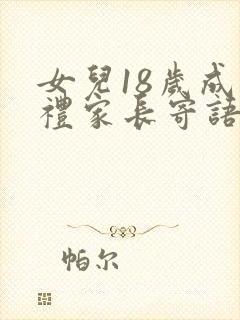 女兒18歲成
禮家長寄語
帕尔